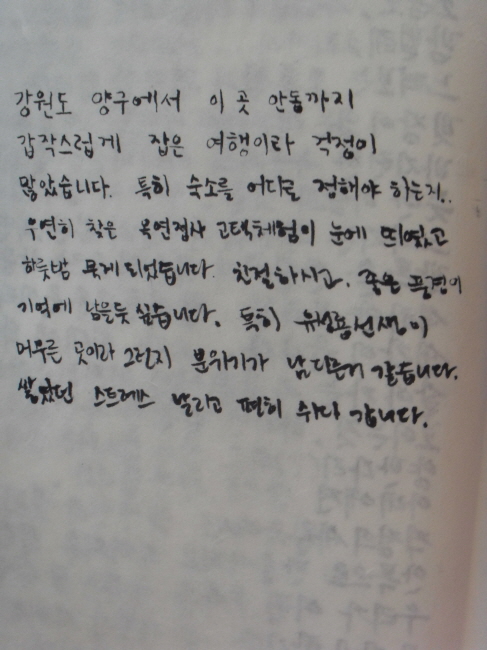 강원도 양구에서 이 곳 안동까지
갑작스럽게 잡은 여행이라 걱정이
많았습니다. 특히 숙소를 어디로 정해야 하는지..
우연히 찾은 옥연정사 고택체험이 눈에 띄였고
하룻밤 묵게 되었습니다. 친절하시고, 좋은 풍경이
기억에 남을듯 싶습니다. 특히 유성룡선생이
머무른 곳이라 그런지 분위기가 남다른거 같습니다.
쌓였던 스트레스 날리고 편히 쉬다 갑니다.